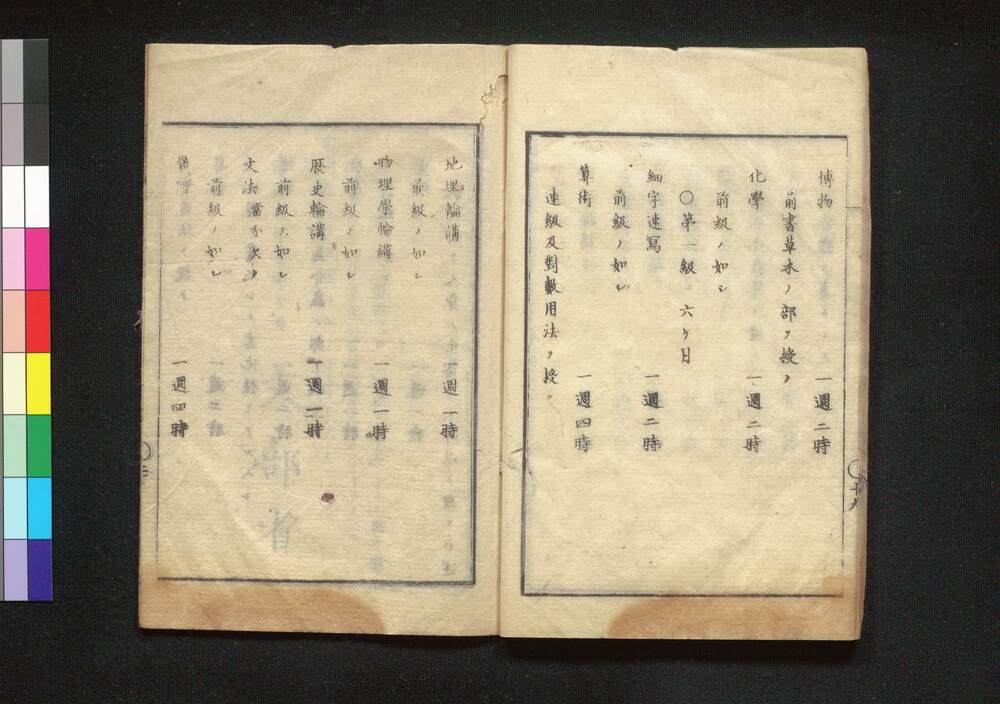 博物 一週二時
前書草木ノ部ヲ授ク
化學 一週二時
前級ノ如シ
○第一級 六ケ月
細字速寫 一週二時
前級ノ如シ
算術 一週四時
連級及對數用法ヲ授ク
地理輪講 一週一時
前級ノ如シ
物理學輪講 一週一時
前級ノ如シ
歷史輪講 一週一時
前級ノ如シ
文法
前級ノ如シ
一週四時